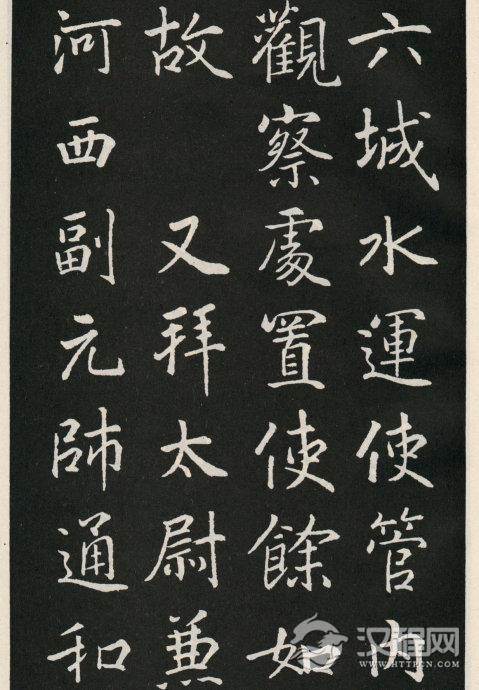 六城水運使管内
觀察處置使餘如
故 又拜太尉兼
河西副元帥通和
汉程网
WWW.HTTPCN.COM